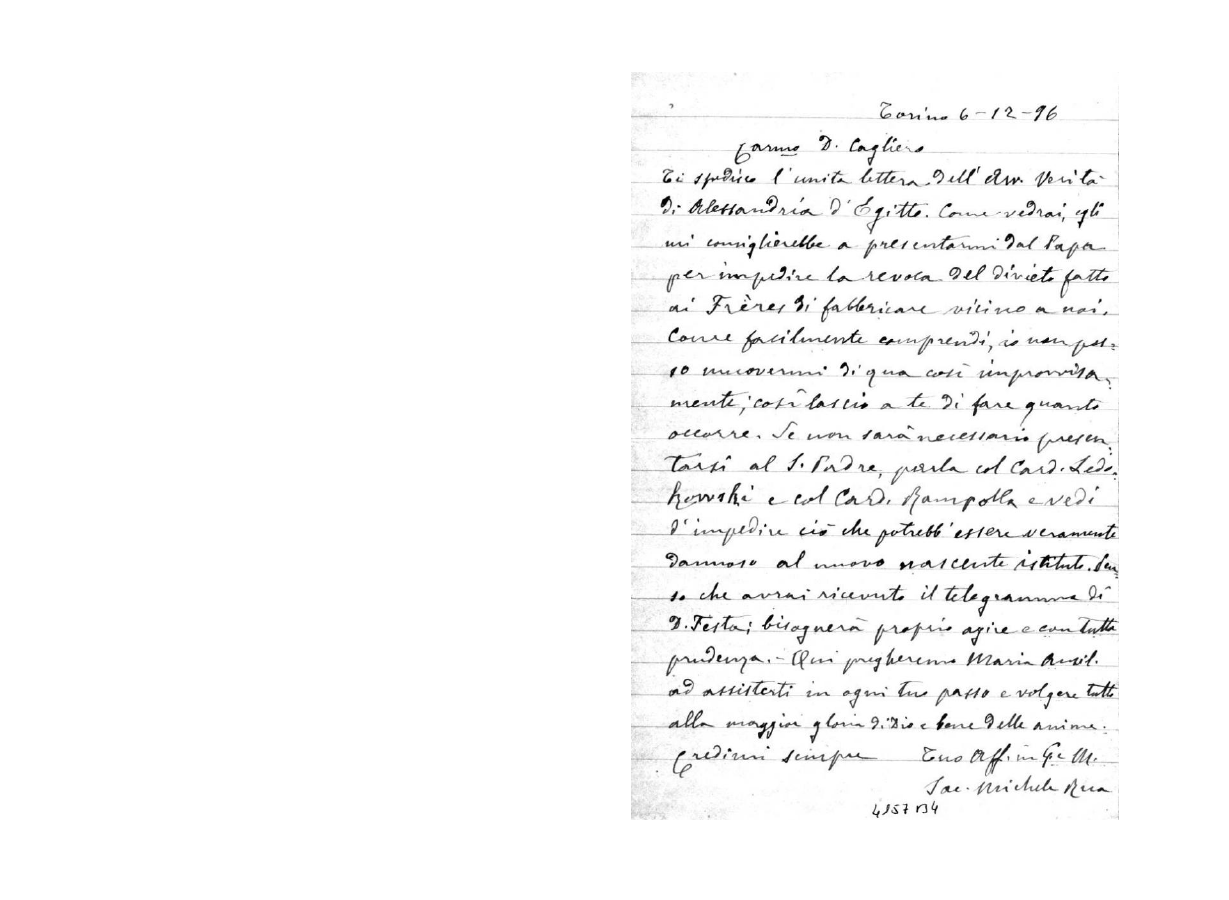 Torino 6-12-96
Carmo D. Cagliero
Ti spedisco l'unita lettera dell'Avv. Verità
di Alessandria d'Egitto. Come vedrai, egli
mi consiglierebbe a presentarmi dal Papa
per impedire la revoca del divieto fatto
ai Frères di fabbricare vicino a noi.
Come facilmente comprendi, io non pos=
so muovermi di qua così improvvisa-
mente; così lascio a te di fare quanto
occorre. Se non sarà necessario presen-
tarsi al S. Padre, parla col Card. Ledo-
kowski e col Card. Rampolla e vedi
d'impedire ciò che potrebb'essere veramente
dannoso al nuovo nascente istituto. Pen-
so che avrai ricevuto il telegramma di
D. Festa; bisognerà proprio agire e con tutta
prudenza. - Qui pregheremo Maria Ausil.
ad assisterti in ogni tuo passo e volgere tutto
alla maggior gloria di Dio e bene delle anime.
Credimi sempre Tuo Aff.m in G. e M.
Sac. Michele Rua
4957 B4